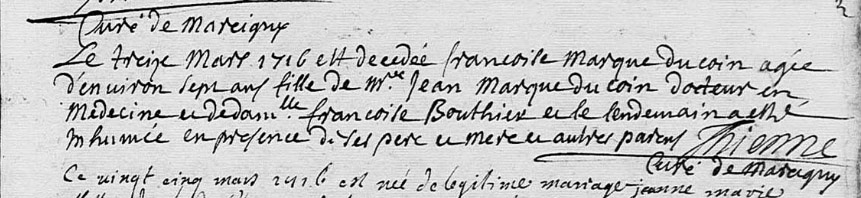 Curé de Marcigny
Le treize Mars 1716 est decedée francoise Marque du coin agée
d'environ sept ans fille de mr. Jean Marque du coin docteur en
Medecine et de dam.lle francoise Bouthier et le lendemain a esté
inhumée en presence de ses pere et mere et autres parens Thienne
Curé de Marcigny
Ce vingt cinq mars 1716 est née de legitime mariage jeanne marie